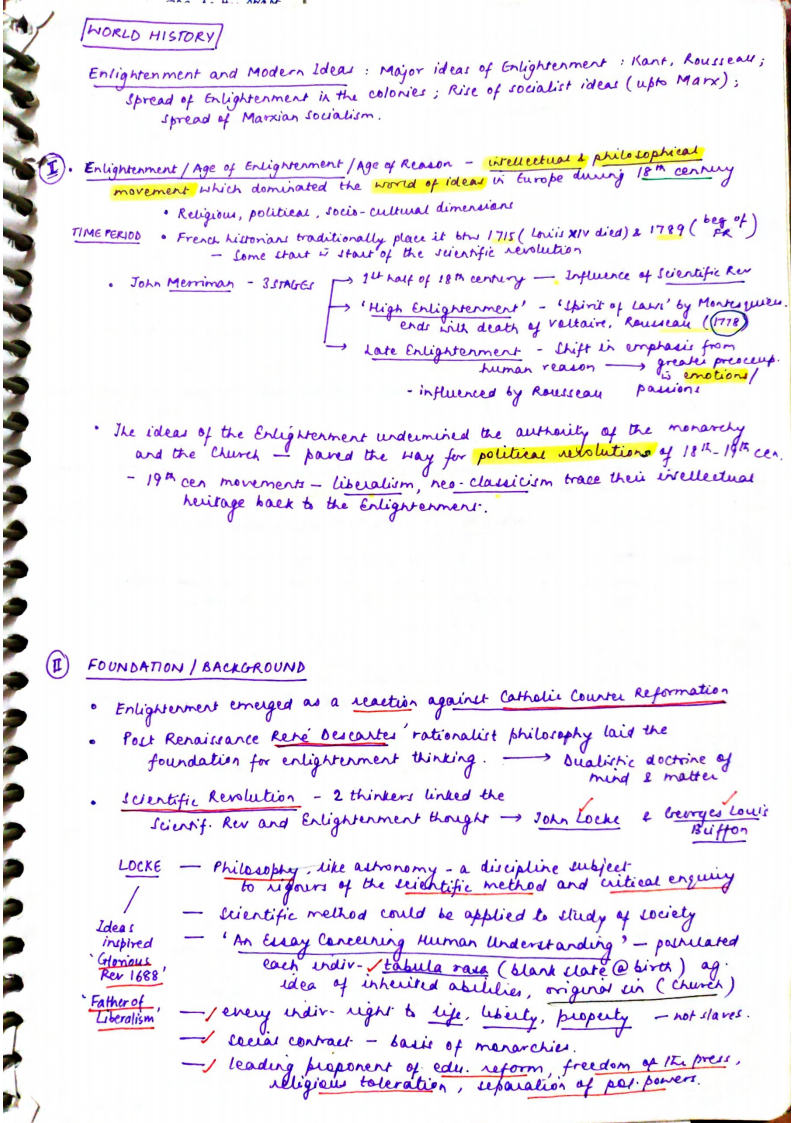 WORLD HISTORY
Enlightenment and Modern Ideas : Major ideas of Enlightenment : Kant, Rousseau ;
Spread of Enlightenment in the colonies ; Rise of socialist ideas (upto Marx) ;
spread of Marxian Socialism.
I • Enlightenment / Age of Enlightenment / Age of Reason – intellectual & philosophical
movement which dominated the world of ideas in Europe during 18th century
• Religious, political, socio-cultural dimensions
TIME PERIOD • French historians traditionally place it btw 1715 (Louis XIV died) & 1789 (beg of FR)
– Some start w start of the scientific revolution
• John Merriman - 3 STAGES → 1st half of 18th century — Influence of Scientific Rev
→ 'High Enlightenment' - 'Spirit of Laws' by Montesquieu.
ends with death of Voltaire, Rousseau (1778)
→ Late Enlightenment - Shift in emphasis from
human reason → greater preoccup.
w emotions/
- influenced by Rousseau passions
• The ideas of the Enlightenment undermined the authority of the monarchy
and the Church — paved the way for political revolutions of 18th - 19th cen.
- 19th cen movements – liberalism, neo-classicism trace their intellectual
heritage back to the Enlightenment.
II FOUNDATION / BACKGROUND
• Enlightenment emerged as a reaction against Catholic Counter Reformation
• Post Renaissance René Descartes' rationalist philosophy laid the
foundation for enlightenment thinking. → Dualistic doctrine of
mind & matter
• Scientific Revolution - 2 thinkers linked the
Scientif. Rev and Enlightenment thought → John Locke & Georges Louis
Buffon
LOCKE — Philosophy, like astronomy - a discipline subject
to rigours of the scientific method and critical enquiry
— Scientific method could be applied to study of society
Ideas
inspired
'Glorious
Rev 1688'
— 'An Essay Concerning Human Understanding' – postulated
each indiv- tabula rasa (blank slate @ birth) ag.
idea of inherited abilities, original sin (church)
'Father of
Liberalism'
— every indiv- right to life, liberty, property – not slaves.
— social contract – basis of monarchies.
— leading proponent of edu. reform, freedom of the press,
religious toleration, separation of pol. powers.